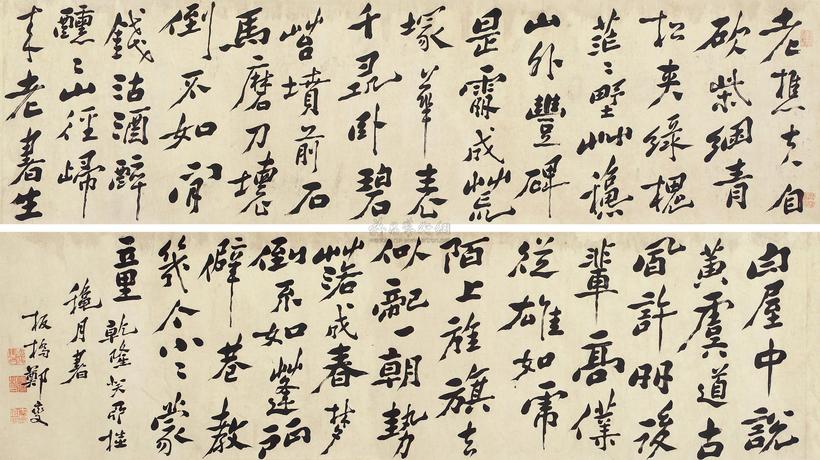 老樵夫自
砍柴綑青
松夾綠槐
茫〻野艸穐
山外豐碑
是處成荒
塚華表
千尋卧碧
苔墳前石
馬磨刀壞
倒不如閒
錢沽酒醉
醺〻山徑歸
来老書生
白屋中説
黃虞道古
風許多後
輩高僕
從雄如虎
陌上旌旗去
似龍一朝勢
落成春夢
倒不如蓬門
僻巷教
幾个小〻蒙
童 乾隆癸酉桂
穐月書
板橋鄭燮